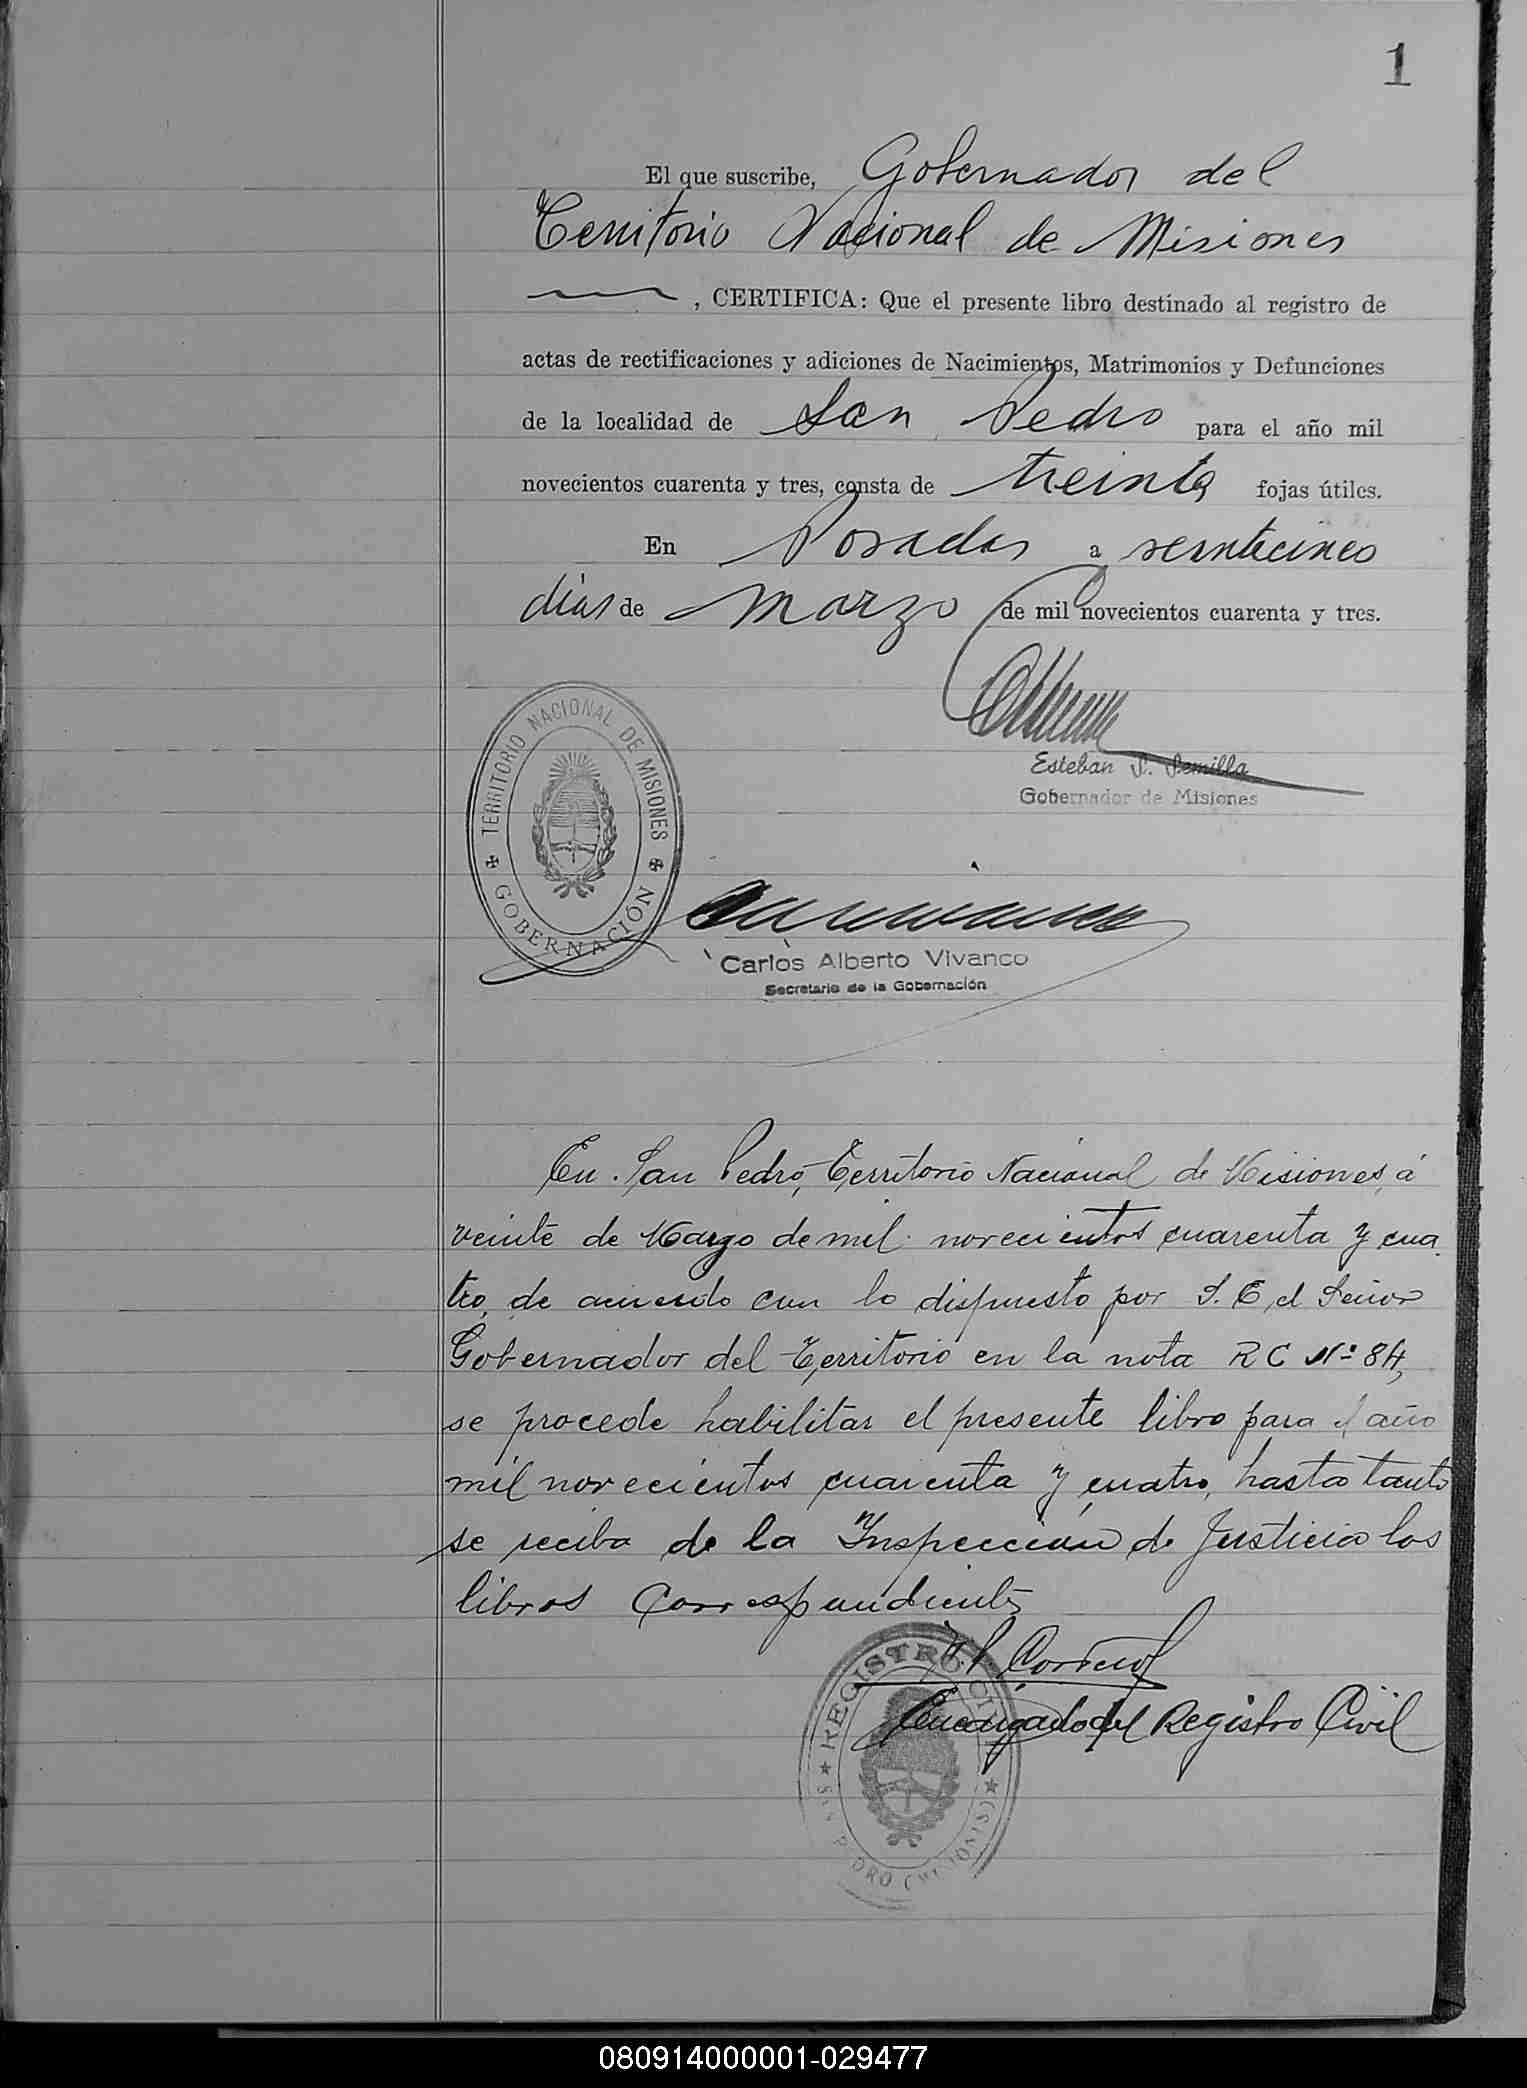 1
El que suscribe, Gobernador del
Territorio Nacional de Misiones
, CERTIFICA: Que el presente libro destinado al registro de
actas de rectificaciones y adiciones de Nacimientos, Matrimonios y Defunciones
de la localidad de San Pedro para el año mil
novecientos cuarenta y tres, consta de treinta fojas útiles.
En Posadas a veinticinco
días de Marzo de mil novecientos cuarenta y tres.
TERRITORIO NACIONAL DE MISIONES
GOBERNACIÓN
Esteban S. Semilla
Gobernador de Misiones
Carlos Alberto Vivanco
Secretario de la Gobernación
En San Pedro, Territorio Nacional de Misiones, á
veinte de Marzo de mil novecientos cuarenta y cua
tro, de acuerdo con lo dispuesto por S. E. el Señor
Gobernador del Territorio en la nota R C Nº 84,
se procede habilitar el presente libro para el año
mil novecientos cuarenta y cuatro, hasta tanto
se reciba de la Inspección de Justicia los
libros Correspondientes
Encargado del Registro Civil
REGISTRO CIVIL
SAN PEDRO (MISIONES)
080914000001-029477